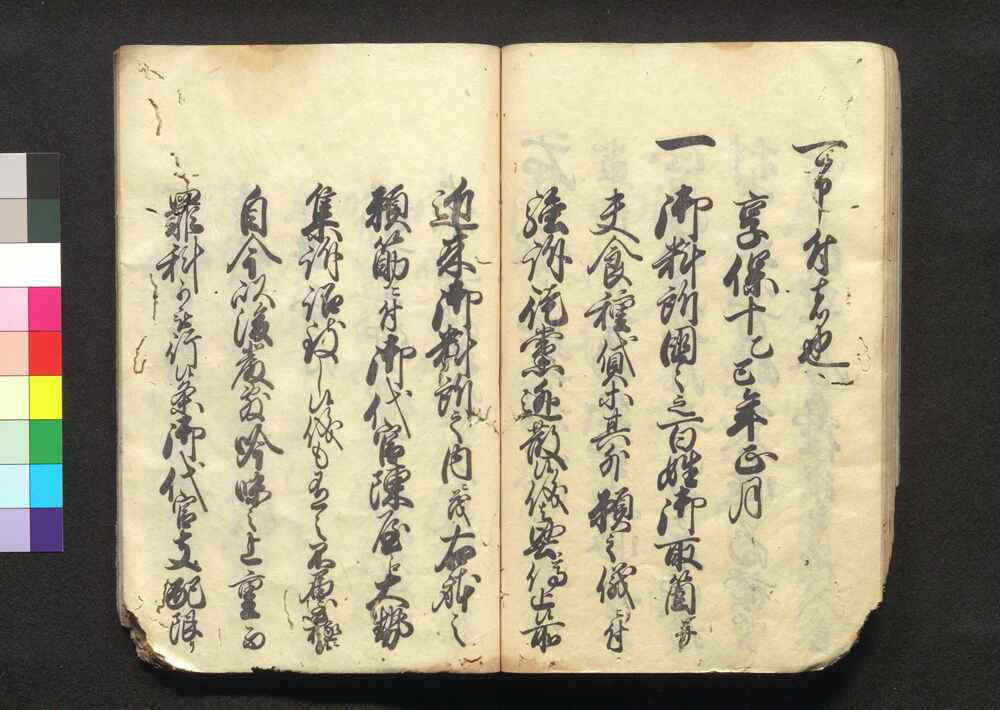 可申付者也
享保十乙巳年正月
一御料所国々之百姓御取箇并
夫食種貸等其外願之儀ニ付
強訴徒党逃散候儀堅停止ニ候所
近来御料所之内ニ茂右躰之
願筋ニ付御代官陳屋江大勢
集訴訟致し候儀も有之不届至極ニ候
自今以後厳敷吟味之上重き
罪科可被行候条御代官支配限り